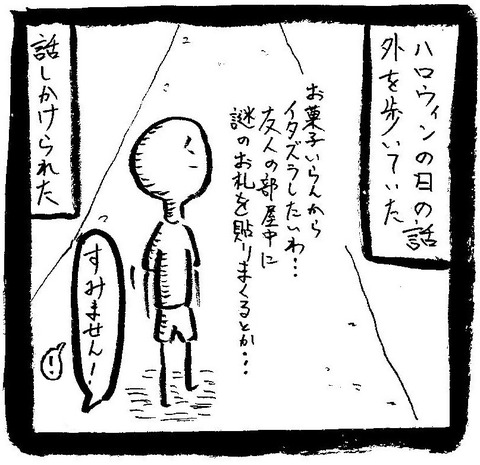 ハロウィンの日の話
外を歩いていた
お菓子いらんから
イタズラしたいわ・・・
友人の部屋中に
謎のお札を貼りまくるとか・・・
話しかけられた
すみません!
!